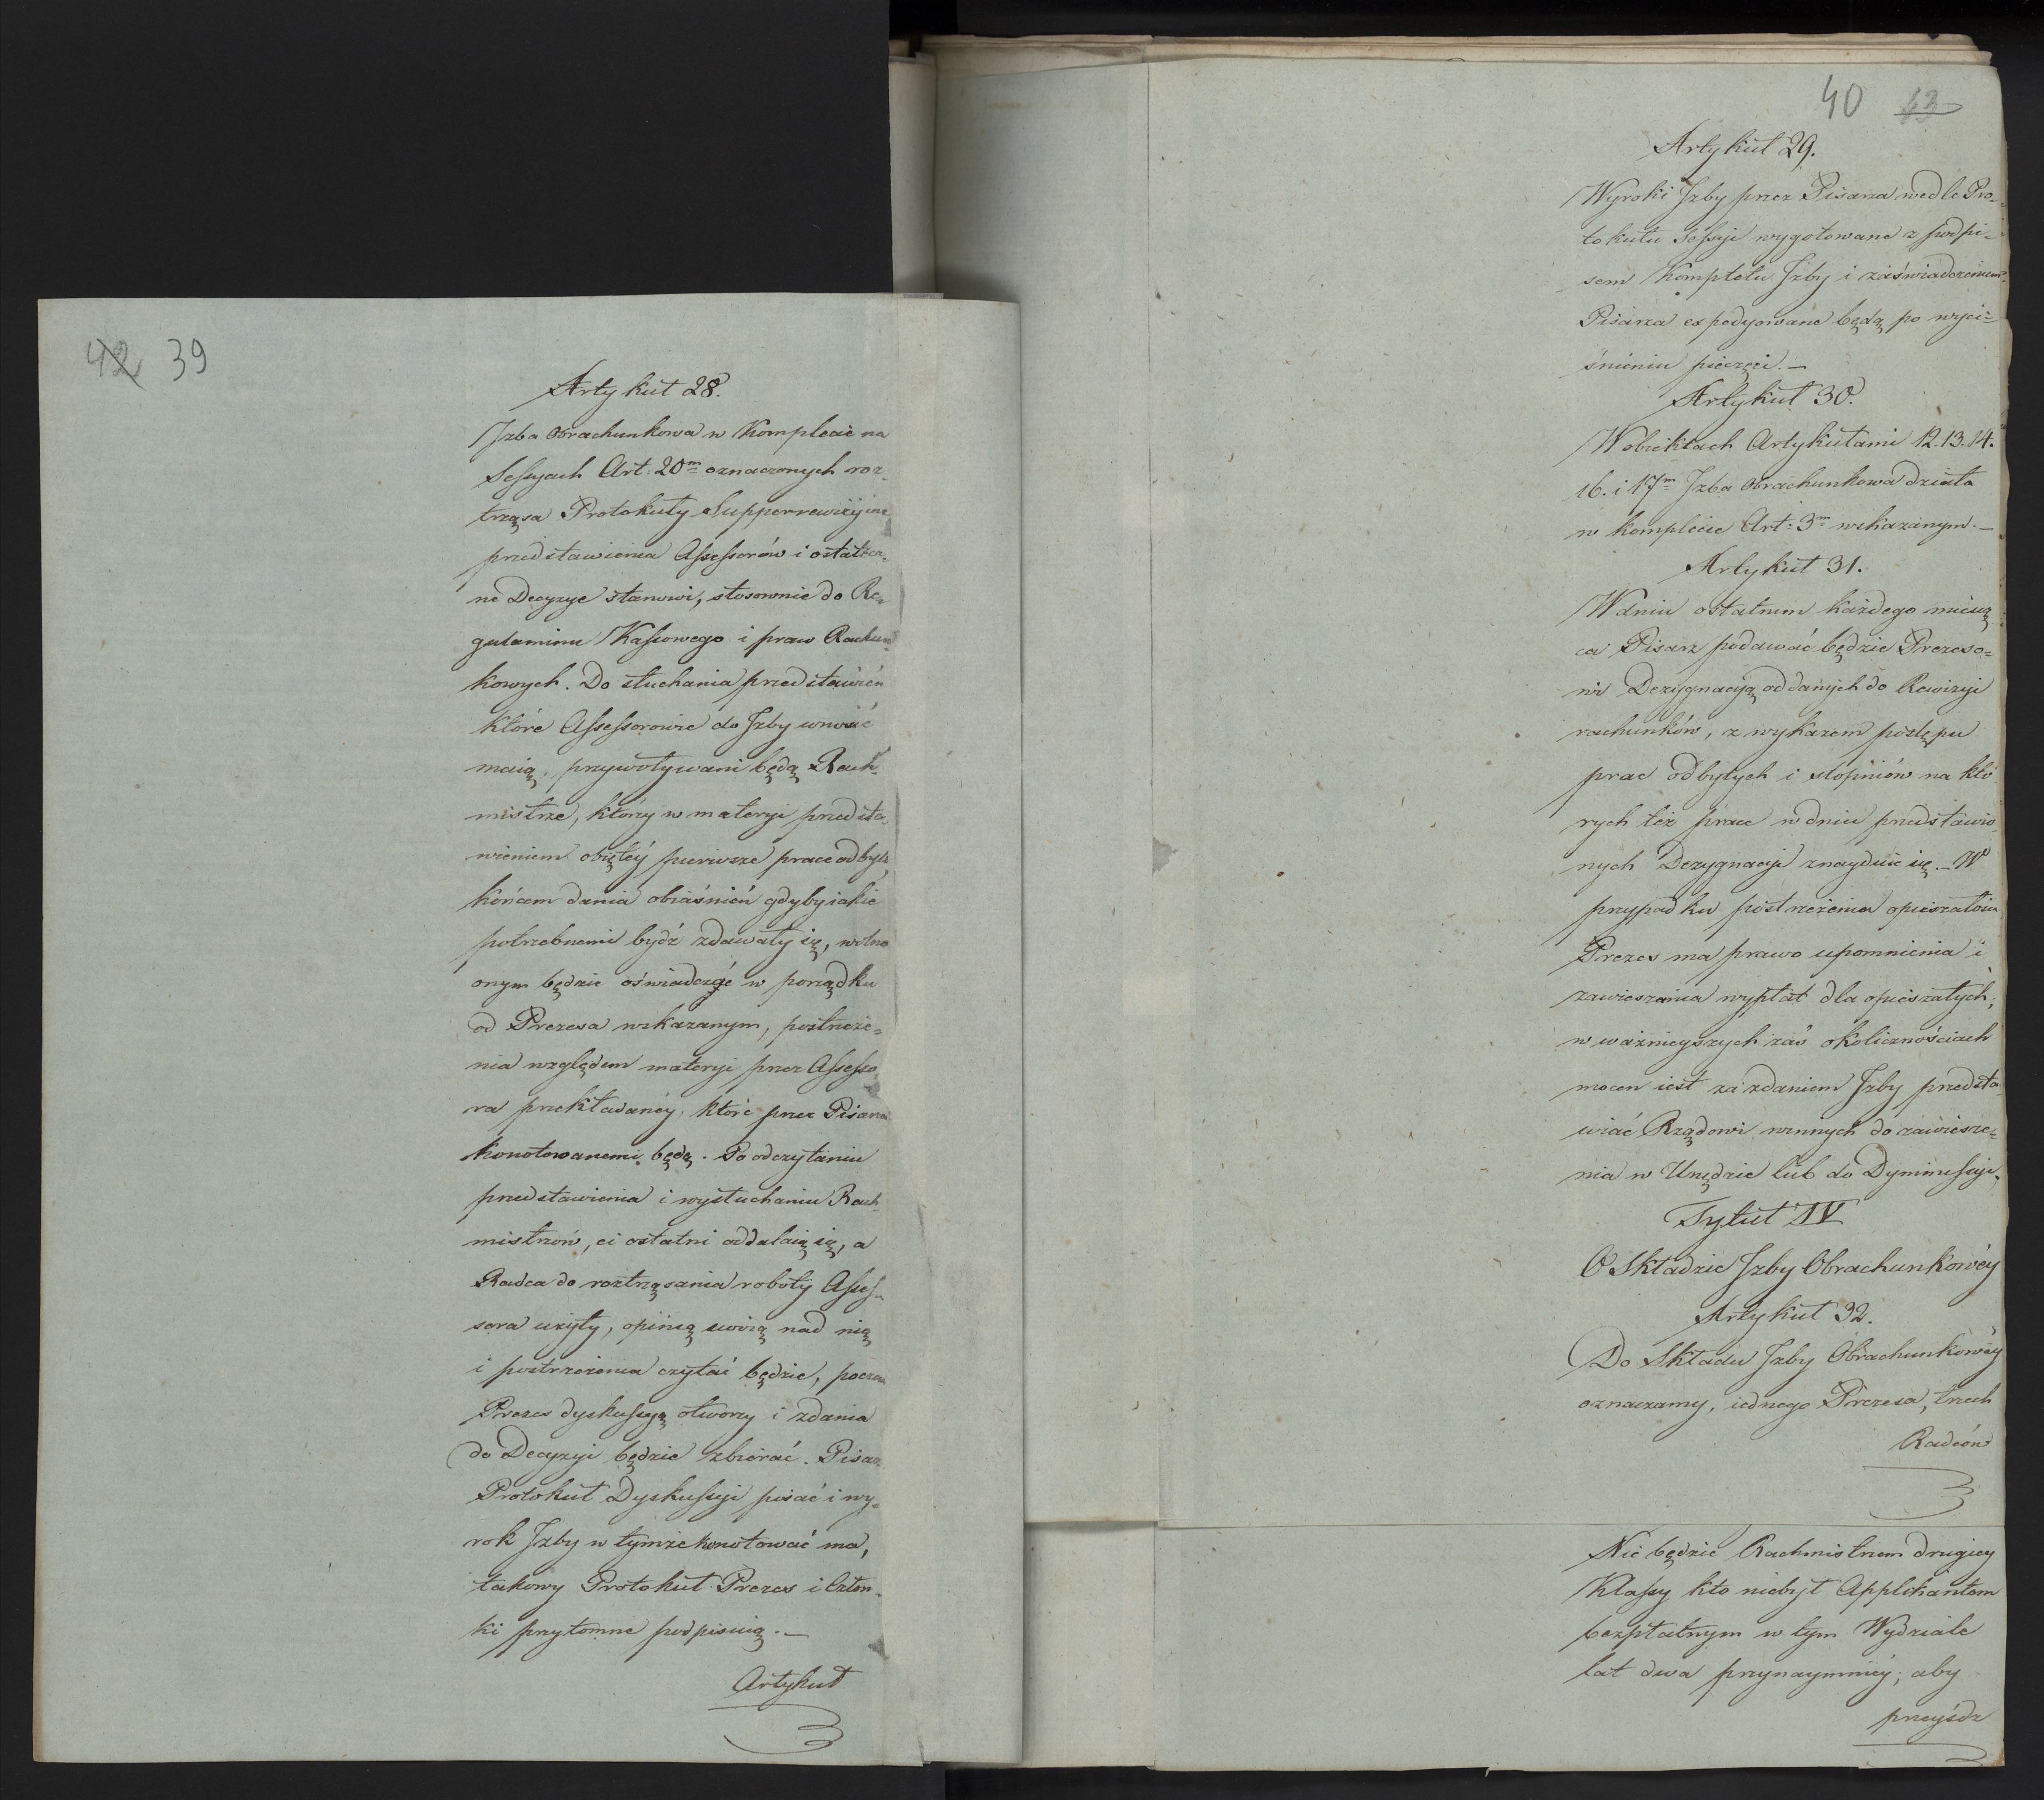 42 39
Artykuł 28.
Izba Obrachunkowa w Komplecie na
Sessyach Art: 20m oznaczonych roz-
trząsa Protokuły Supperrewizyine
przedstawienia Assessorów i ostatecz-
ne Decyzye stanowi, stosownie do Re-
gulaminu Kassowego i praw Rachun-
kowych. Do słuchania przedstawień
które Assessorowie do Izby wnosić
maią, przywoływani będą Rach-
mistrze, którzy w materyi przedsta-
wieniem obiętéy pierwsze prace odbyli,
końcem dania obiaśnień gdyby iakie
potrzebnemi bydź zdawały się, wolno
onym będzie oświadczyć w porządku
od Prezesa wskazanym, postrzeże-
nia względem materyi przez Assesso-
ra przekładanéy, które przez Pisarza
konotowanemi będą. Po odczytaniu
przedstawienia i wysłuchaniu Rach-
mistrzów, ci ostatni oddalaią się, a
Radca do roztrząsania roboty Asses-
sora użyty, opinią swoią nad nią
i postrzeżenia czytać będzie, poczem
Prezes dyskussyą otworzy i zdania
do Decyzyi będzie zbierać. Pisarz
Protokuł Dyskussyi pisać i wy-
rok Izby w tymże konotować ma,
takowy Protokuł Prezes i Człon-
ki przytomne podpisuią.—
Artykuł
40 43
Artykuł 29.
Wyroki Izby przez Pisarza wedle Pro-
tokułu Sessyi wygotowane z podpi-
sem Kompletu Izby i zaświadczeniem
Pisarza expedyowane będą po wyci-
śnieniu pieczęci.—
Artykuł 30.
W obiektach Artykułami 12. 13. 14.
16. i 17m Izba Obrachunkowa działa
w komplecie Art: 3m wskazanym.—
Artykuł 31.
W dniu ostatnim każdego miesią
ca Pisarz podawać będzie Prezeso-
wi Dezygnacyą oddanych do Rewizyi
rachunków, z wykazem postępu
prac odbytych i stopniów na któ
rych też prace w dniu przedstawio-
nych Dezygnacyi znayduie się.— W
przypadku postrzeżenia opieszałości
Prezes ma prawo upomnienia i
zawieszania wypłat dla opieszałych,
w ważnieyszych zaś okolicznościach
mocen iest za zdaniem Izby przedsta
wiać Rządowi winnych do zawiesze-
nia w Urzędzie lub do Dymmissyi.
Tytuł IV
O Składzie Izby Obrachunkowéy
Artykuł 32.
Do Składu Izby Obrachunkowéy
oznaczamy, iednego Prezesa, trzech
Radców
Nie będzie Rachmistrzem drugiey
Klassy kto niebył Applikantem
bezpłatnym w tym Wydziale
lat dwa przynaymniéy, aby
przeyśdź